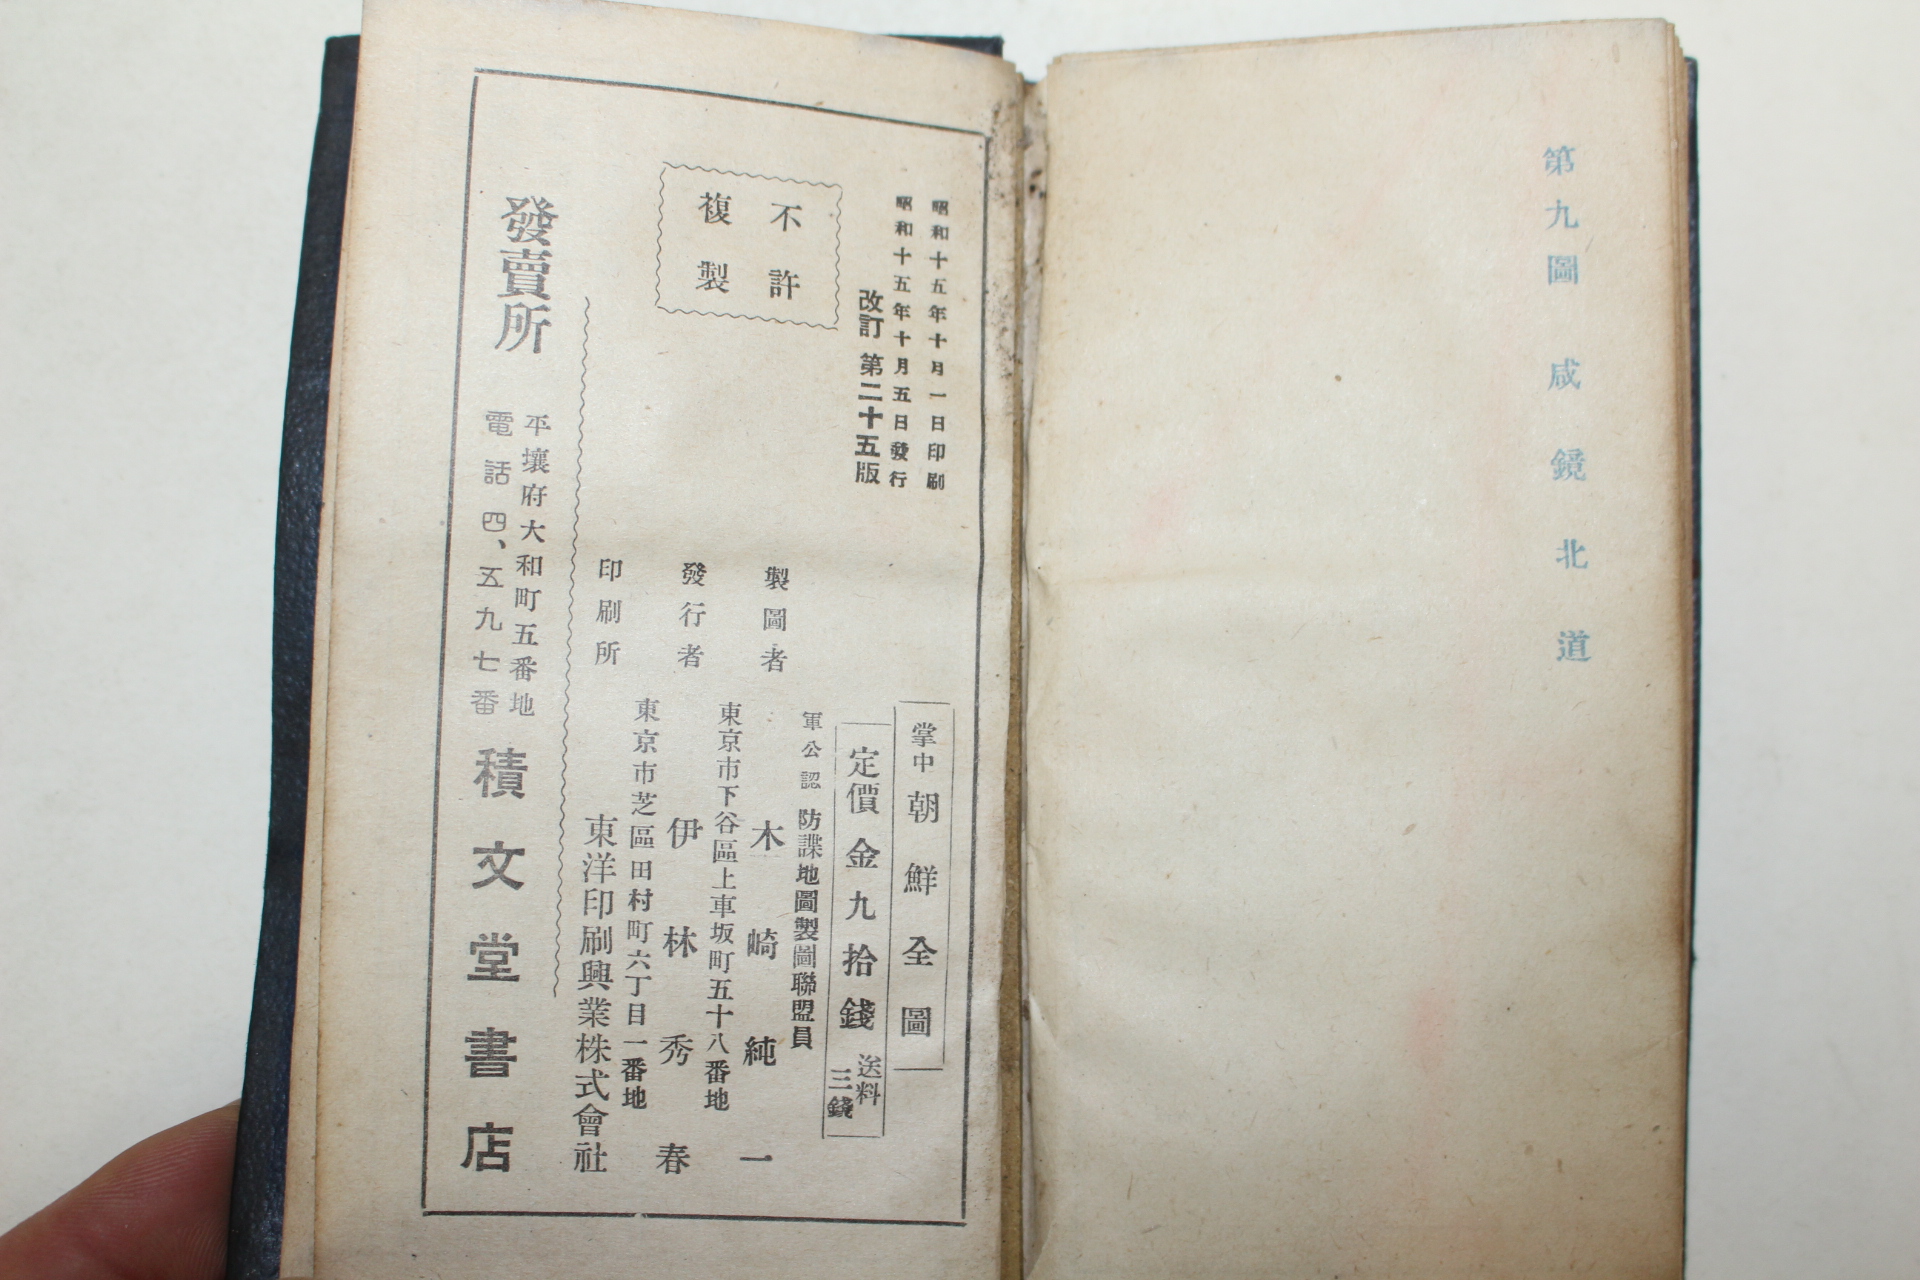 第九圖 咸鏡北道
昭和十五年十月一日印刷
昭和十五年十月五日發行
改訂第二十五版
不許
複製
掌中 朝鮮全圖
定價金九拾錢
送料
三錢
軍公認 防諜地圖製圖聯盟員
製圖者 木崎純一
東京市下谷區上車坂町五十八番地
發行者 伊林秀春
東京市芝區田村町六丁目一番地
印刷所 東洋印刷興業株式會社
發賣所
平壤府大和町五番地
電話四、五九七番
積文堂書店